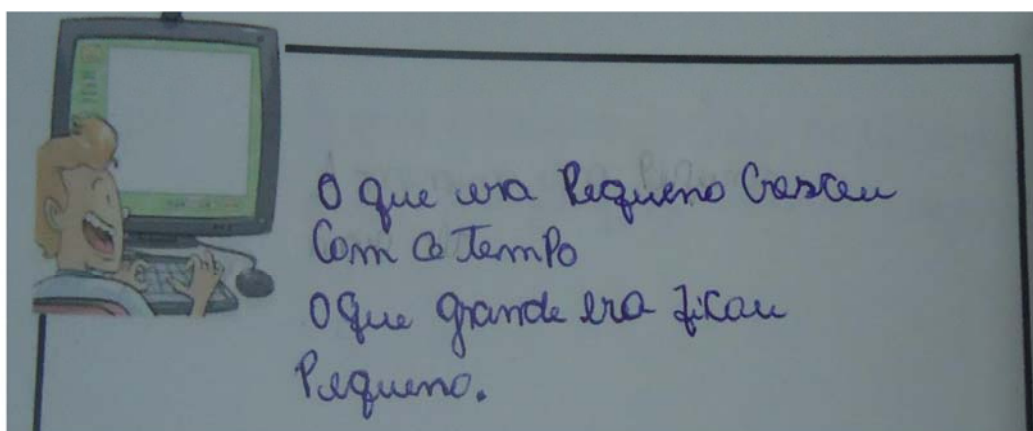 O que era Pequeno Cresceu
Com o Tempo
O que grande era ficou
Pequeno.